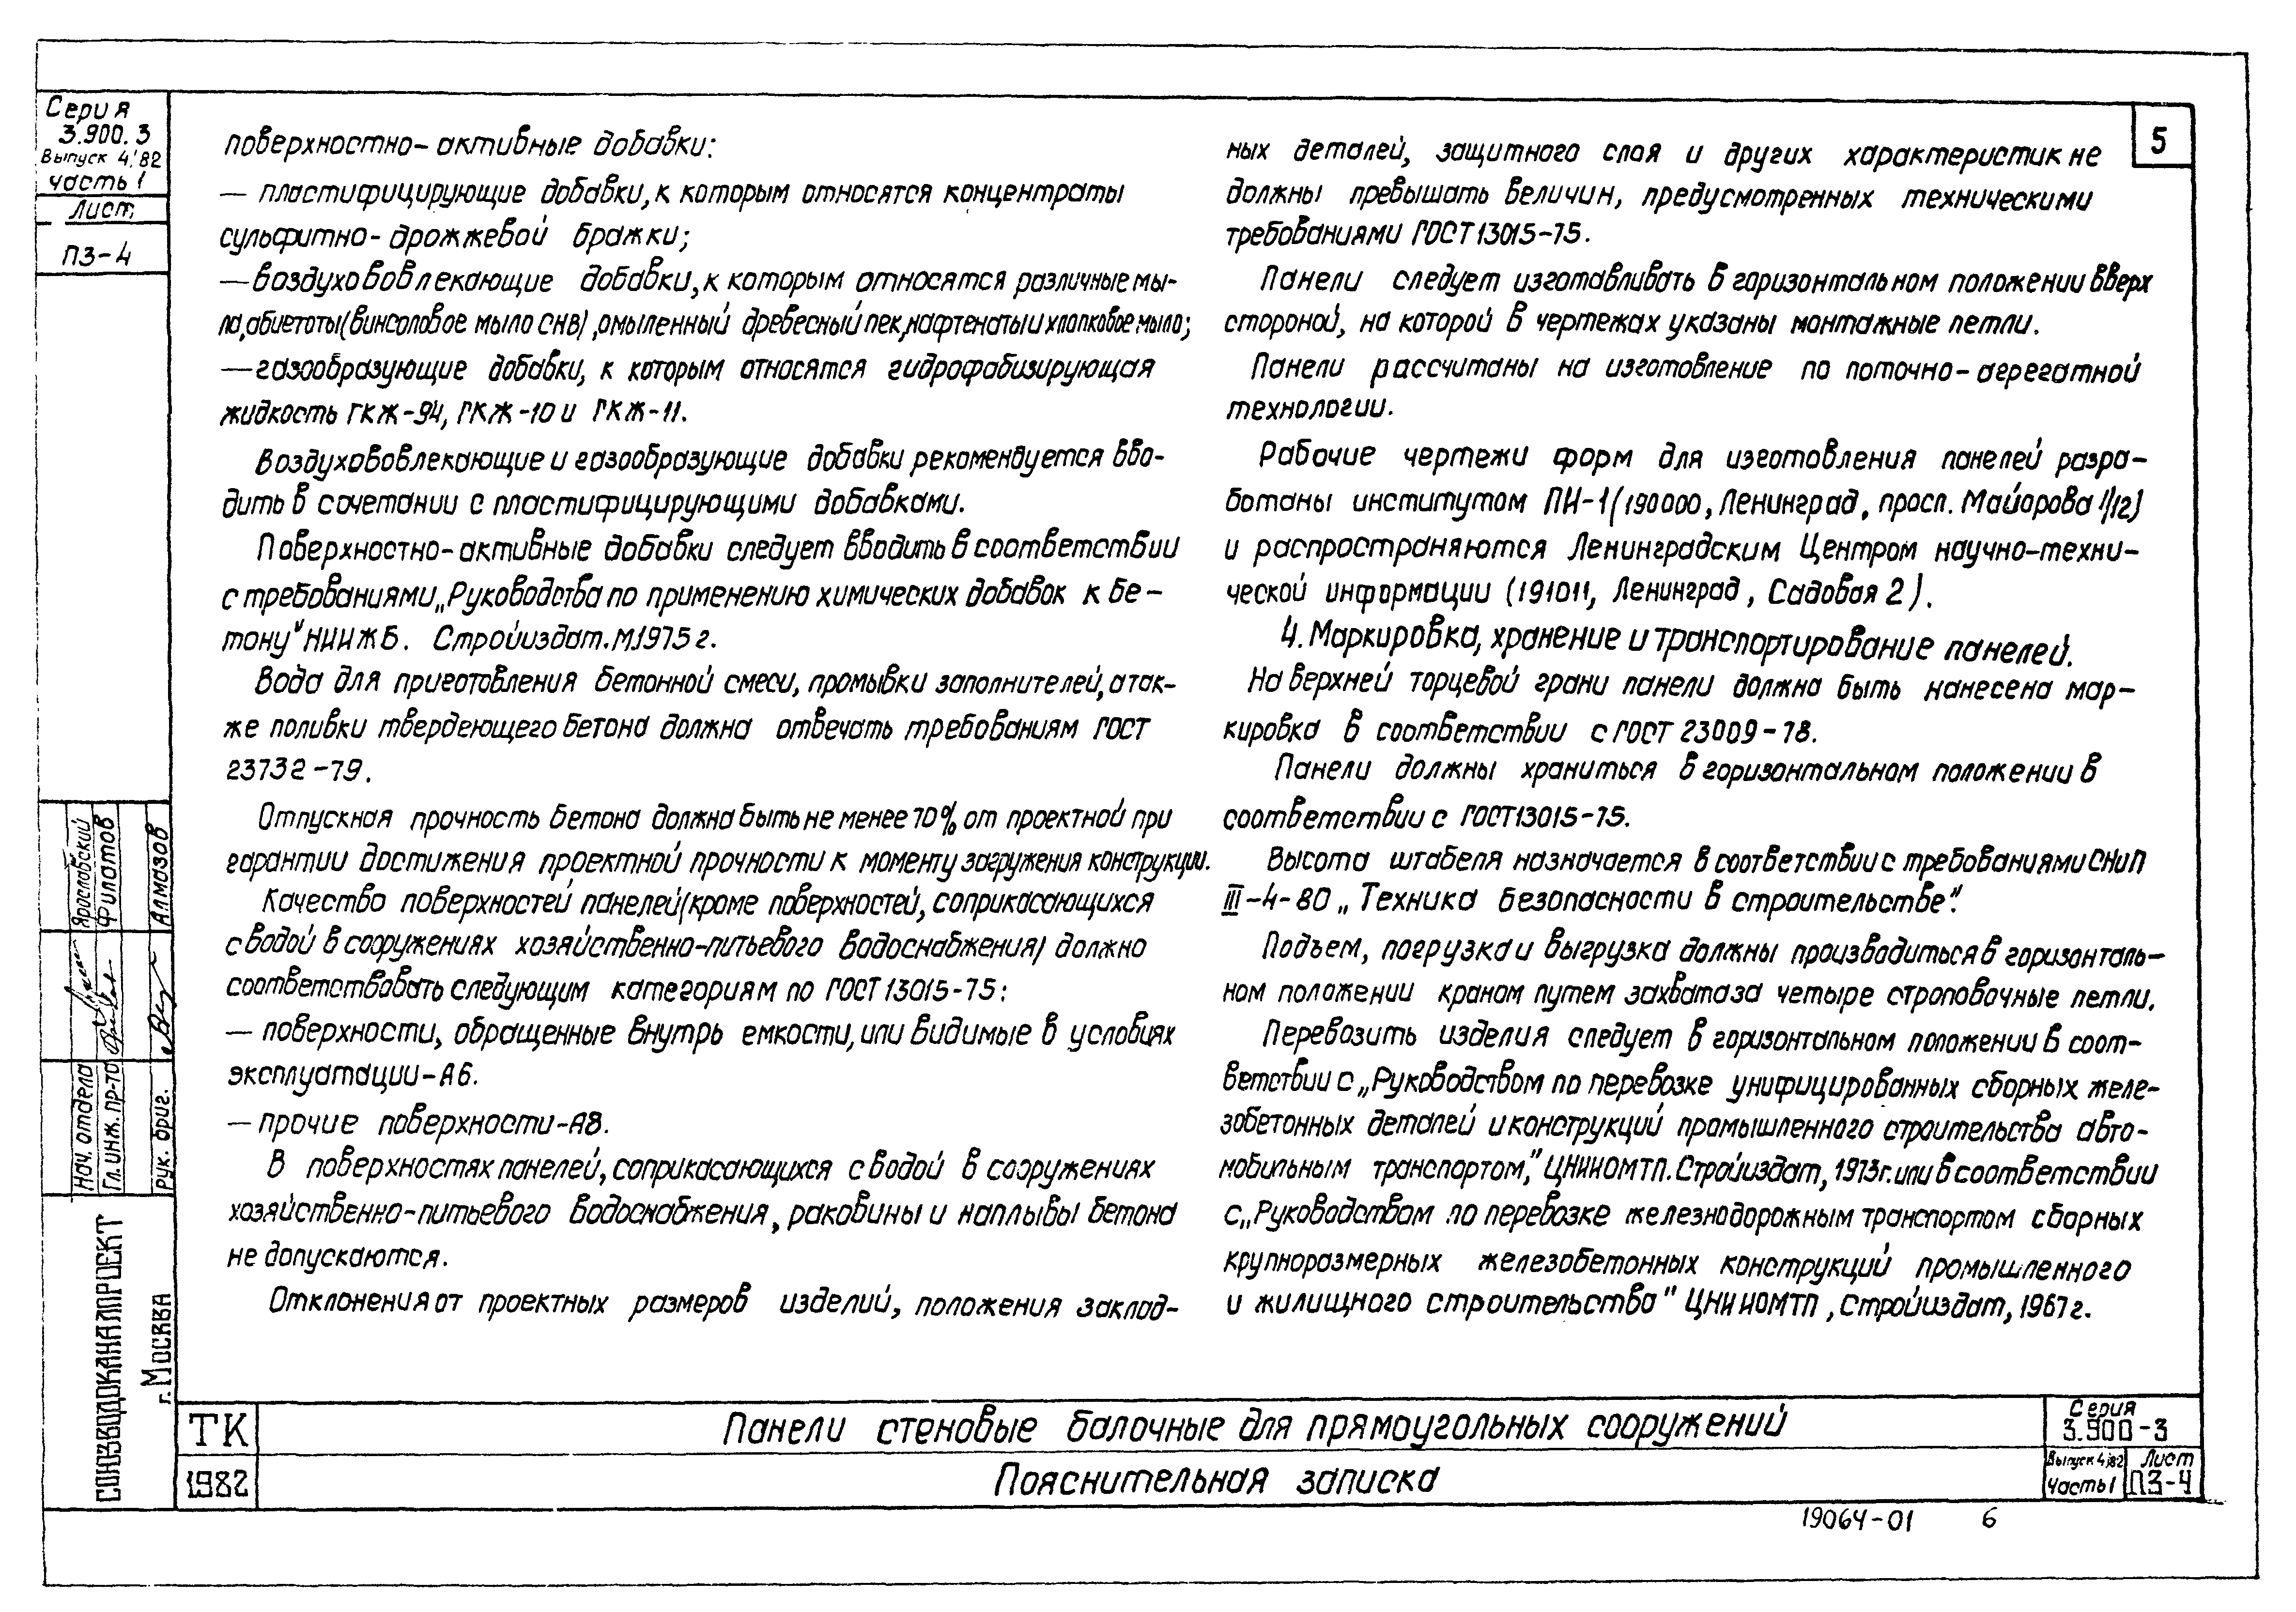 Серия
3.900.3
Выпуск 4/82
часть 1
Лист
ПЗ-4
5
поверхностно-активные добавки:
— пластифицирующие добавки, к которым относятся концентраты
сульфитно-дрожжевой бражки;
— воздухововлекающие добавки, к которым относятся различные мы-
ла, абиетоты (винсоловое мыло СНВ), омыленный древесный пек, нафтенаты и хлопковое мыло;
— газообразующие добавки, к которым относятся гидрофабизирующая
жидкость ГКЖ-94, ГКЖ-10 и ГКЖ-11.
Воздухововлекающие и газообразующие добавки рекомендуется вво-
дить в сочетании с пластифицирующими добавками.
Поверхностно-активные добавки следует вводить в соответствии
с требованиями „Руководства по применению химических добавок к бе-
тону" НИИЖБ. Стройиздат. М.1975 г.
Вода для приготовления бетонной смеси, промывки заполнителей, а так-
же поливки твердеющего бетона должна отвечать требованиям ГОСТ
23732-79.
Отпускная прочность бетона должна быть не менее 70% от проектной при
гарантии достижения проектной прочности к моменту загружения конструкции.
Качество поверхностей панелей (кроме поверхностей, соприкасающихся
с водой в сооружениях хозяйственно-питьевого водоснабжения) должно
соответствовать следующим категориям по ГОСТ 13015-75:
— поверхности, обращенные внутрь емкости, или видимые в условиях
эксплуатации-А6.
— прочие поверхности-А8.
В поверхностях панелей, соприкасающихся с водой в сооружениях
хозяйственно-питьевого водоснабжения, раковины и наплывы бетона
не допускаются.
Отклонения от проектных размеров изделий, положения заклад-
ных деталей, защитного слоя и других характеристик не
должны превышать величин, предусмотренных техническими
требованиями ГОСТ 13015-75.
Панели следует изготавливать в горизонтальном положении вверх
стороной, на которой в чертежах указаны монтажные петли.
Панели рассчитаны на изготовление по поточно-агрегатной
технологии.
Рабочие чертежи форм для изготовления панелей разра-
ботаны институтом ПИ-1 (190000, Ленинград, просп. Майорова 1/12)
и распространяются Ленинградским Центром научно-техни-
ческой информации (191011, Ленинград, Садовая 2).
4. Маркировка, хранение и транспортирование панелей.
На верхней торцевой грани панели должна быть нанесена мар-
кировка в соответствии с ГОСТ 23009-78.
Панели должны храниться в горизонтальном положении в
соответствии с ГОСТ 13015-75.
Высота штабеля назначается в соответствии с требованиями СНиП
III-4-80 „Техника безопасности в строительстве".
Подъем, погрузка и выгрузка должны производиться в горизонталь-
ном положении краном путем захвата за четыре строповочные петли.
Перевозить изделия следует в горизонтальном положении в соот-
ветствии с „Руководством по перевозке унифицированных сборных желе-
зобетонных деталей и конструкций промышленного строительства авто-
мобильным транспортом," ЦНИИОМТП. Стройиздат, 1973г. или в соответствии
с „Руководством по перевозке железнодорожным транспортом сборных
крупноразмерных железобетонных конструкций промышленного
и жилищного строительства" ЦНИИОМТП, Стройиздат, 1967 г.
Нач. отдела Ярославский
Гл. инж. пр-та Филатов
Рук. бриг. Алмазов
СОЮЗВОДОКАНАЛПРОЕКТ
г. Москва
ТК
1982
Панели стеновые балочные для прямоугольных сооружений
Пояснительная записка
Серия
3.900-3
Выпуск 4/82
Часть 1
Лист
ПЗ-4
19064-01 6